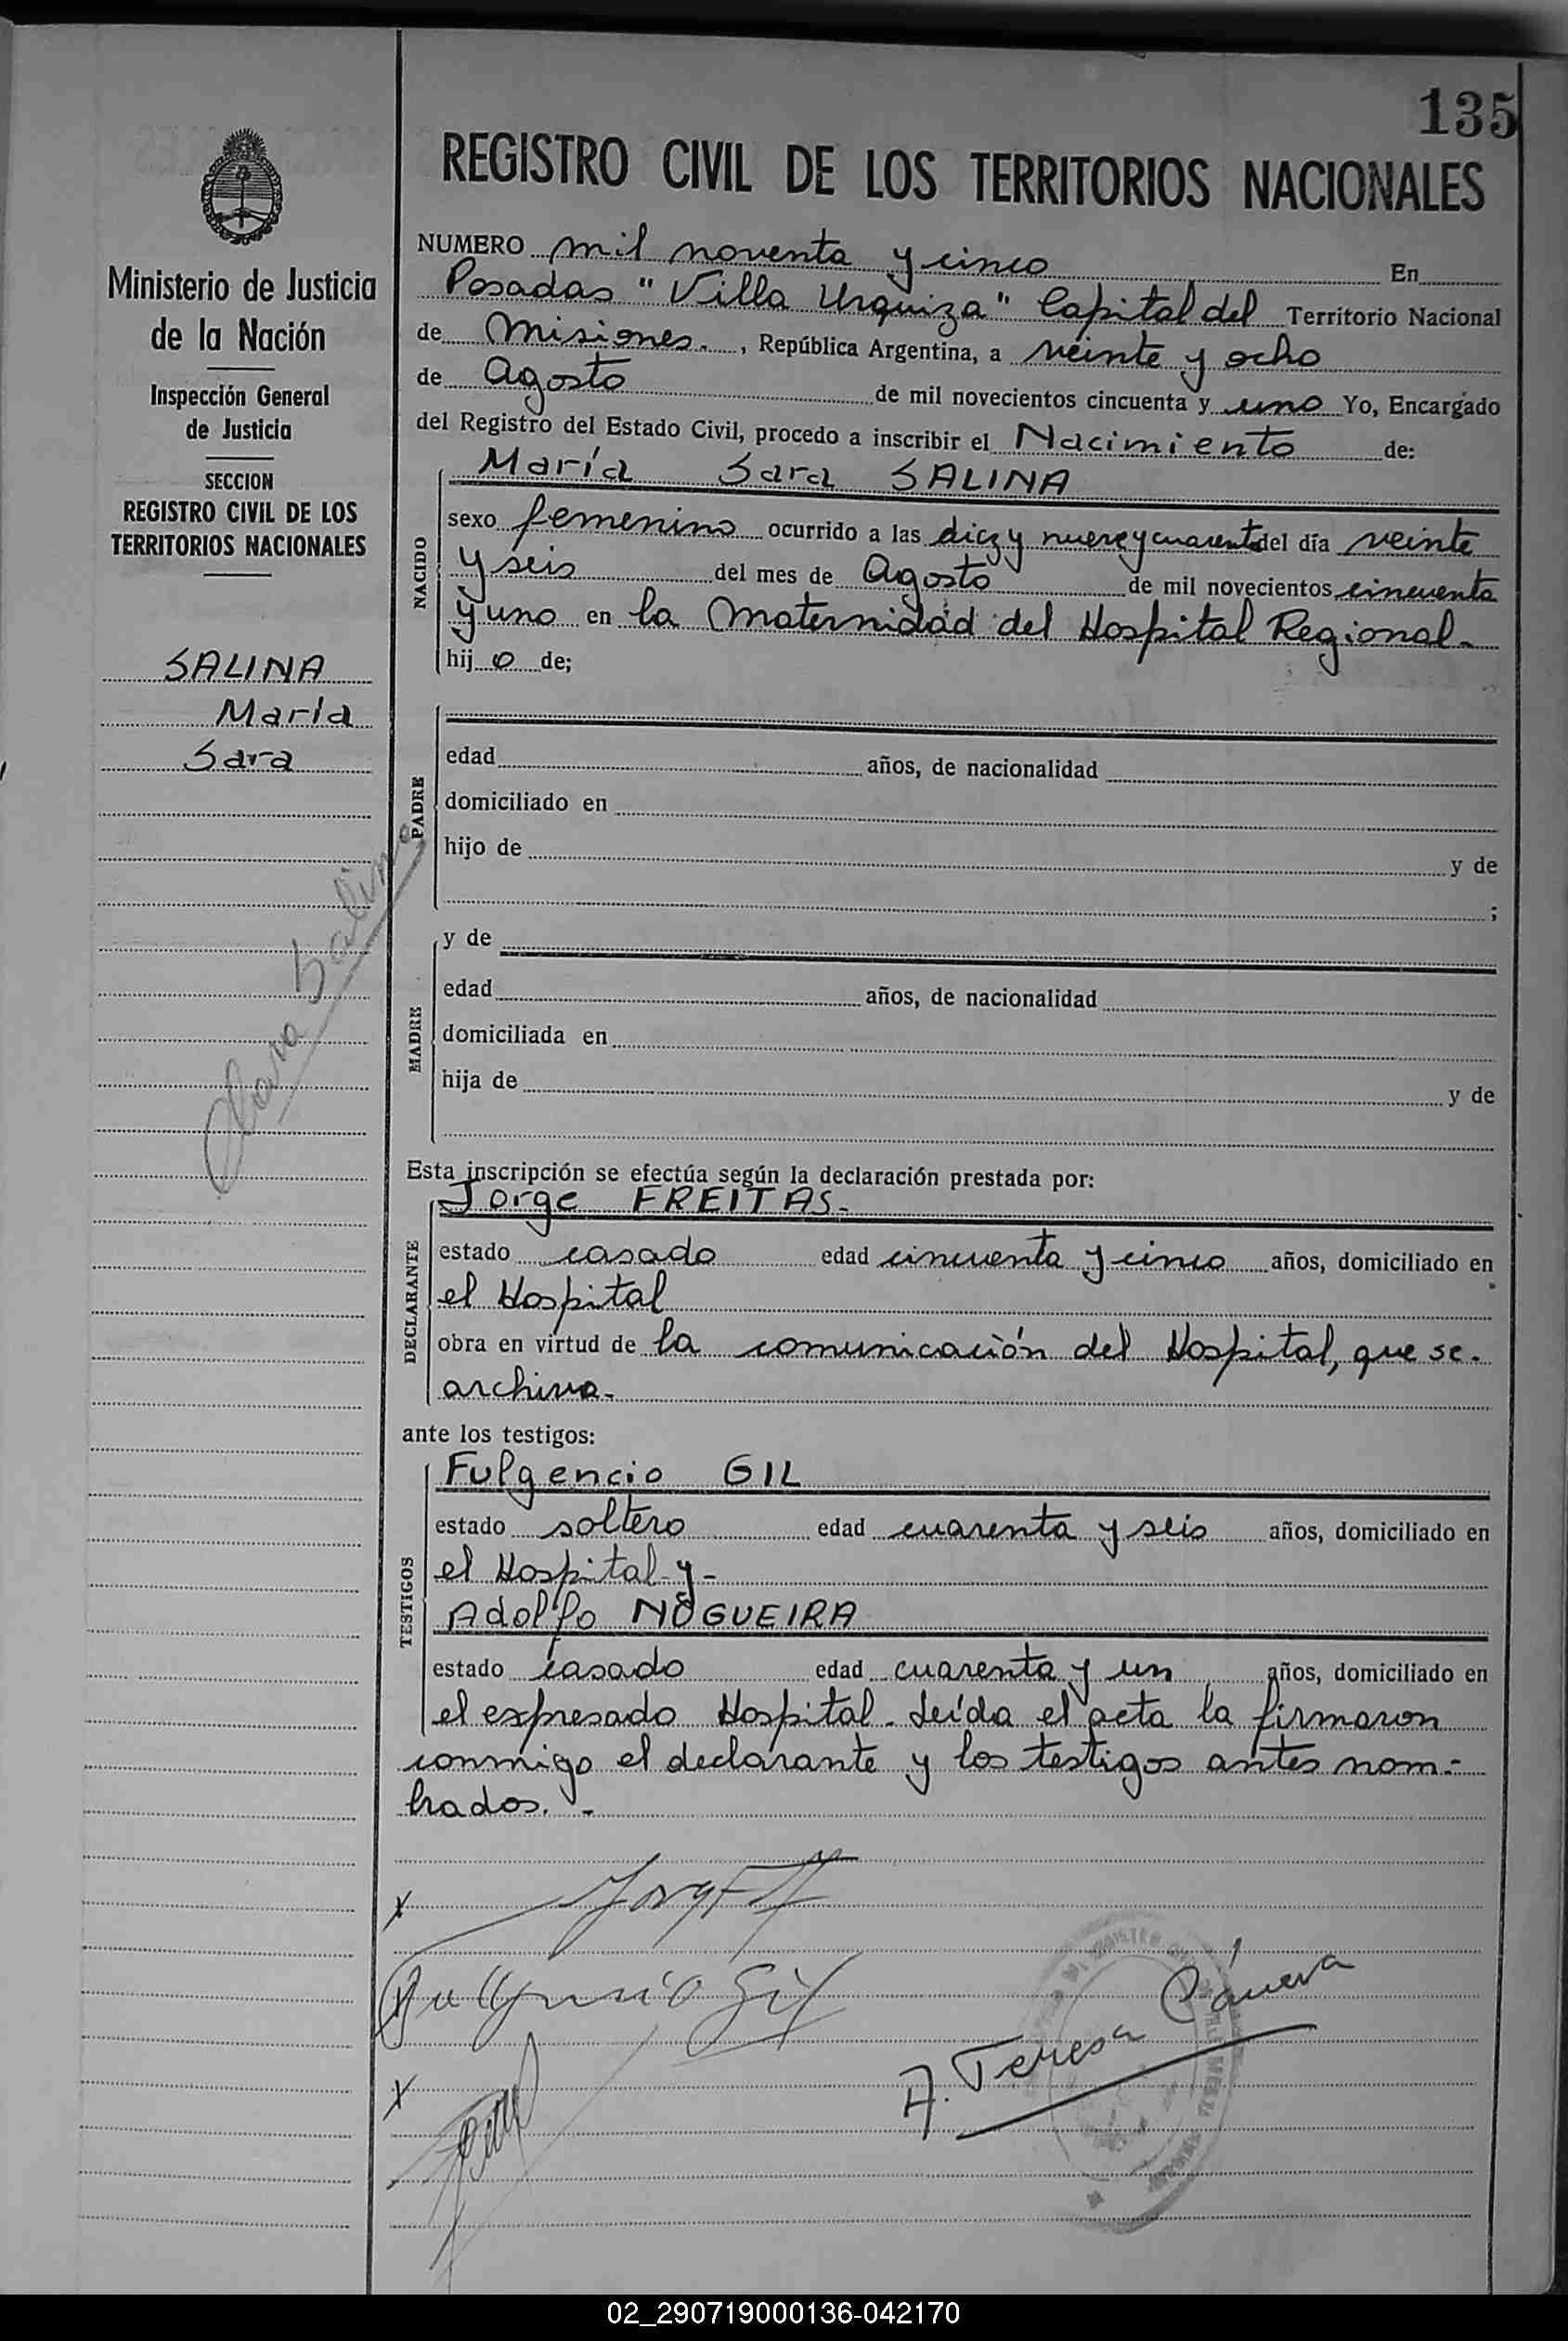 135
REGISTRO CIVIL DE LOS TERRITORIOS NACIONALES
Ministerio de Justicia
de la Nación
Inspección General
de Justicia
SECCION
REGISTRO CIVIL DE LOS
TERRITORIOS NACIONALES
SALINA
María
Sara
Clara Salina
NUMERO mil noventa y cinco En
Posadas "Villa Urquiza" Capital del Territorio Nacional
de Misiones. , República Argentina, a veinte y ocho
de Agosto de mil novecientos cincuenta y uno Yo, Encargado
del Registro del Estado Civil, procedo a inscribir el Nacimiento de:
María Sara SALINA
NACIDO
sexo femenino ocurrido a las diez y nueve y cuarenta del día veinte
y seis del mes de Agosto de mil novecientos cincuenta
y uno en la Maternidad del Hospital Regional-
hij o de;
PADRE
edad años, de nacionalidad
domiciliado en
hijo de y de
;
MADRE
y de
edad años, de nacionalidad
domiciliada en
hija de y de
Esta inscripción se efectúa según la declaración prestada por:
DECLARANTE
Jorge FREITAS-
estado casado edad cincuenta y cinco años, domiciliado en
el Hospital
obra en virtud de la comunicación del Hospital, que se
archiva-
ante los testigos:
TESTIGOS
Fulgencio GIL
estado soltero edad cuarenta y seis años, domiciliado en
el Hospital-y-
Adolfo NOGUEIRA
estado casado edad cuarenta y un años, domiciliado en
el expresado Hospital- Leída el acta la firmaron
conmigo el declarante y los testigos antes nom-
brados.-
x
Fulgencio Gil
x
A. Teresa Cáneva
02_290719000136-042170